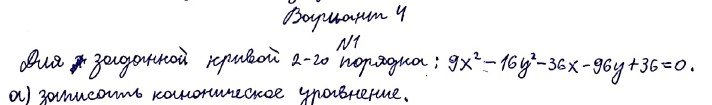 Вариант 4
N1
Для заданной кривой 2-го порядка: 9x²-16y²-36x-96y+36=0.
а) записать каноническое уравнение.